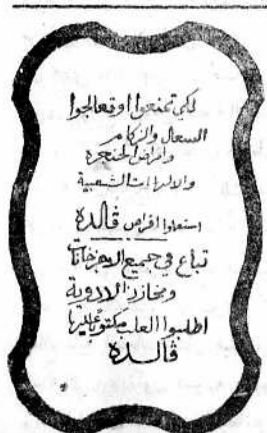 لكي تمنعوا او تعالجوا
السعال والزكام
وامراض الحنجره
والالتهابات الشعبية
استعملوا اقراص ڤالده
تباع في جميع الاجزاخانات
ومخازن الادوية
اطلبوا العلب مكتوبا عليها
ڤالده